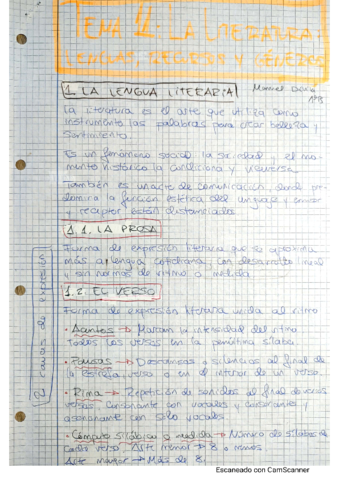 TEMA 12: LA LITERATURA:
LENGUAS, REGISTROS Y GÉNEROS
1. LA LENGUA LITERARIA
Manuel
La literatura es el arte que utiliza como
instrumento las palabras para crear belleza y
sentimiento.
Es un fenómeno social la sociedad y el mo-
mento histórico la condiciona y viceversa
También es un acto de comunicación, donde pre-
domina la función estética del lenguaje y emisor
y receptor están distanciados
1.1. LA PROSA
Forma de expresión literaria que se aproxima
más a lengua cotidiana, con desarrollo lineal
y sin normas de ritmo o medida
1.2. EL VERSO
Forma de expresión literaria unida al ritmo
• Acentos → Marcan la intensidad del ritmo
Todos los versos en la penúltima sílaba
• Pausas → Descansos o silencios al final de
la estrofa, verso o en el interior de un verso.
• Rima → Repetición de sonidos al final de varios
versos, consonante con vocales y consonantes y
asonante con solo vocales.
• Cómputo silábico o medida → Número de sílabas de
cada verso. Arte menor → 8 o menos
Arte mayor → Más de 8.
2 causas de expresión
Escaneado con CamScanner